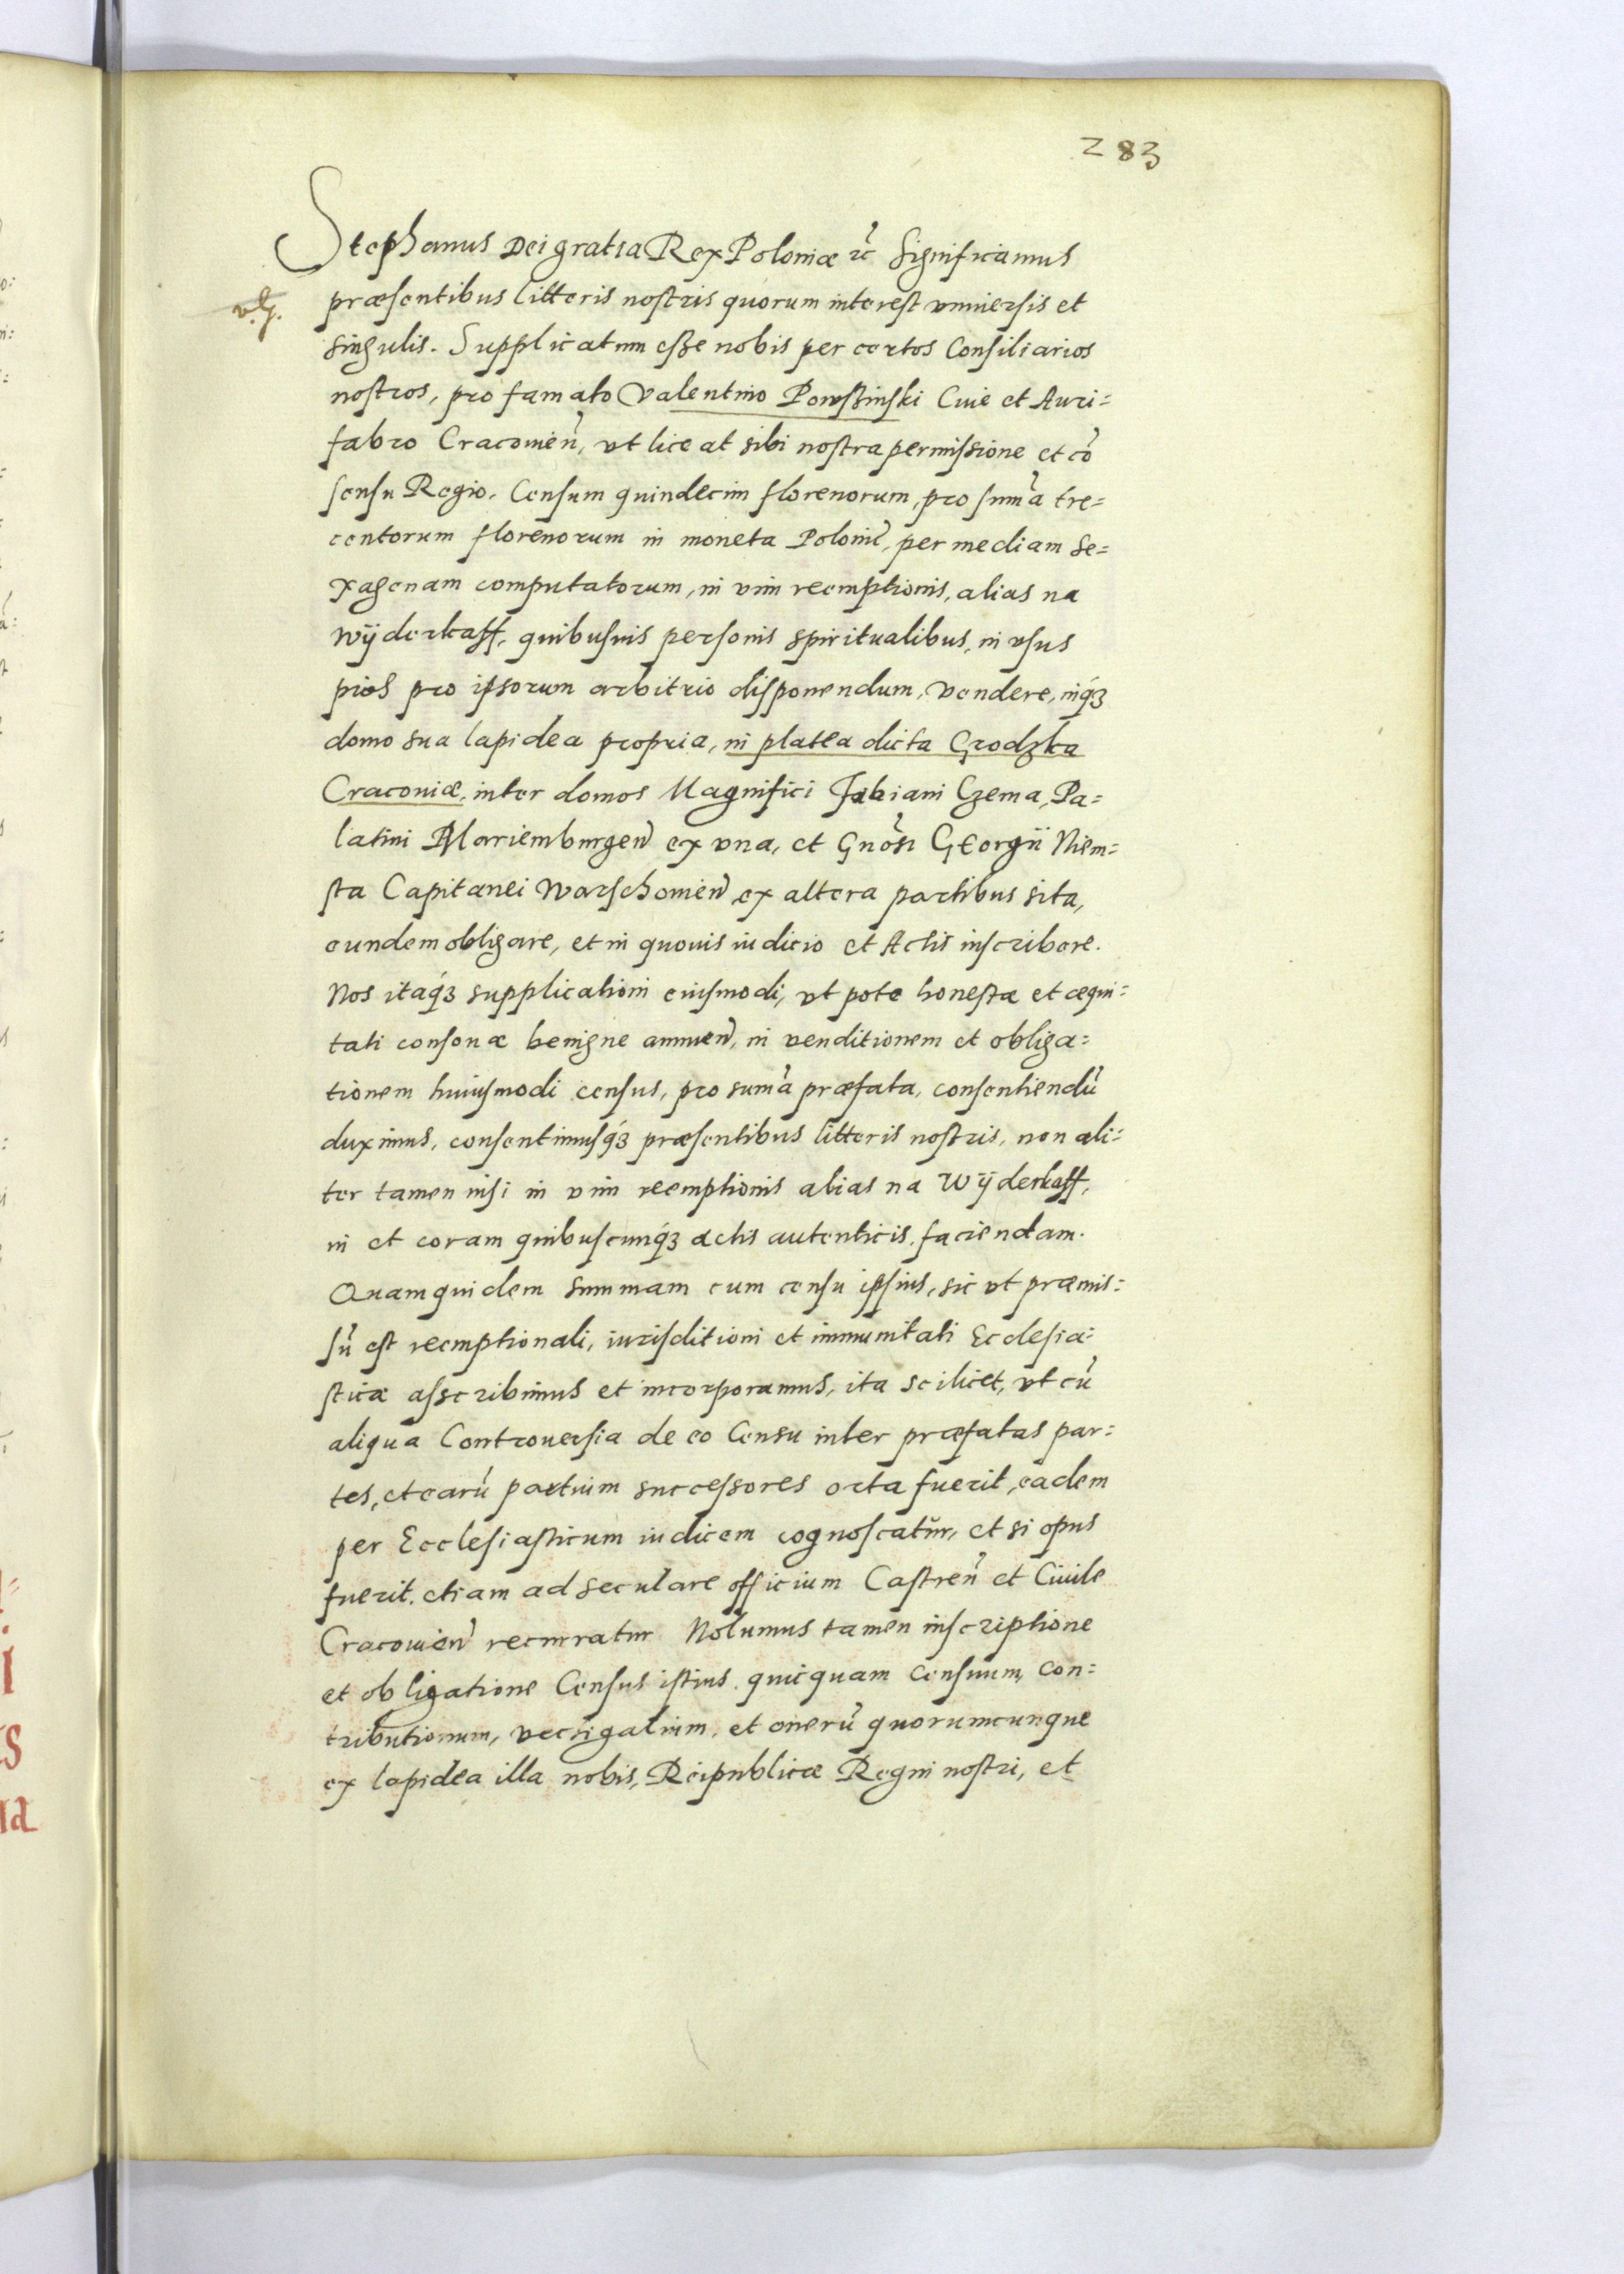 283
Stephanus Dei gratia Rex Poloniæ ꝛc̃ Significamus
præsentibus litteris nostris quorum interest vniuersis et
singulis. Supplicatum eße nobis per certos Consiliarios
nostros, pro famato Valentino Powßinski Ciue et Auri=
fabro Cracouieñ, vt liceat sibi nostra permissione et cõ
sensu Regio, Censum quindecim florenorum, pro sum̃a tre=
centorum florenorum in moneta Poloniẽ, per mediam se=
xagenam computatorum, in vim reemptionis, alias na
wÿderkaff, quibusuis personis spiritualibus, in vsus
pios pro ipsorum arbitrio disponendum, vendere, inq́ꝫ
domo sua lapidea propria, in platea dicta Grodzka
Cracouiæ, inter domos Magnifici Fabiani Czema, Pa=
latini Mariemburgeñ ex vna, et Gnõsi Georgii Niem=
sta Capitanei Warschouieñ ex altera partibus sita,
eundem obligare, et in quouis iudicio et Actis inscribere.
Nos itaq́ꝫ supplicationi eiusmodi, vt pote honestæ et æqui=
tati consonæ benigne annueñ, in venditionem et obliga=
tionem huiusmodi census, pro sum̃a præfata, consentiendũ
duximus, consentimusq́ꝫ præsentibus litteris nostris, non ali=
ter tamen nisi in vim reemptionis alias na Wÿderkaff,
in et coram quibuscunq́ꝫ actis autenticis, faciendam.
Quamquidem summam cum censu ipsius, sic vt præmis=
sũ est reemptionali, iurisditioni et immunitati Ecclesia=
sticæ asscribimus et incorporamus, ita scilicet, vt cũ
aliqua Controuersia de eo Censu inter præfatas par=
tes, et earũ partium successores orta fuerit, eadem
per Ecclesiasticum iudicem cognoscatur, et si opus
fuerit, etiam ad seculare officium Castreñ et Ciuile
Cracouieñ recurratur Nolumus tamen inscriptione
et obligatione Census istius quicquam Censuum, con=
tributionum, vectigalium, et onerũ quorumcunque
ex lapidea illa nobis, Reipublicæ Regni nostri, et